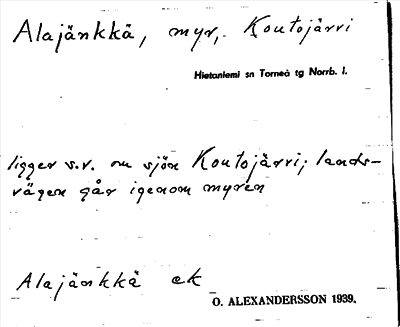 Alajänkkä, myr, Koutojärvi
Hietaniemi sn Torneå tg Norrb. l.
ligger s.v. om sjön Koutojärvi; lands-
vägen går igenom myren
Alajänkkä ek
O. ALEXANDERSSON 1939.